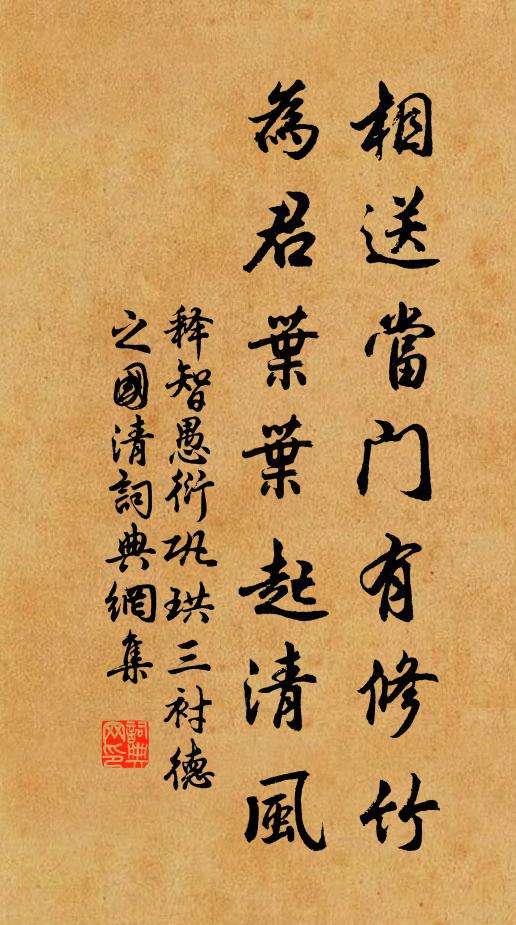 相送當門有修竹
為君葉葉起清風
释智愚衍巩珙三衬德
之國清詞典網集
詞典網印